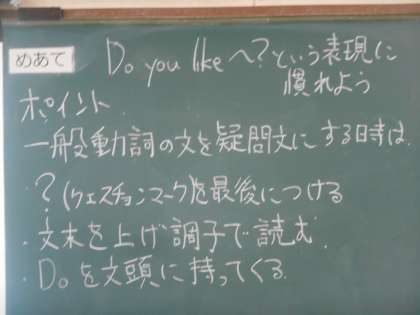 めあて Do you like ～?という表現に
慣れよう
ポイント
一般動詞の文を疑問文にする時は
・?(クエスチョンマーク)を最後につける
・文末を上げ調子で読む
・Doを文頭に持ってくる